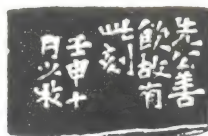 先公善
飲故有
此刻
壬申十
月少牧